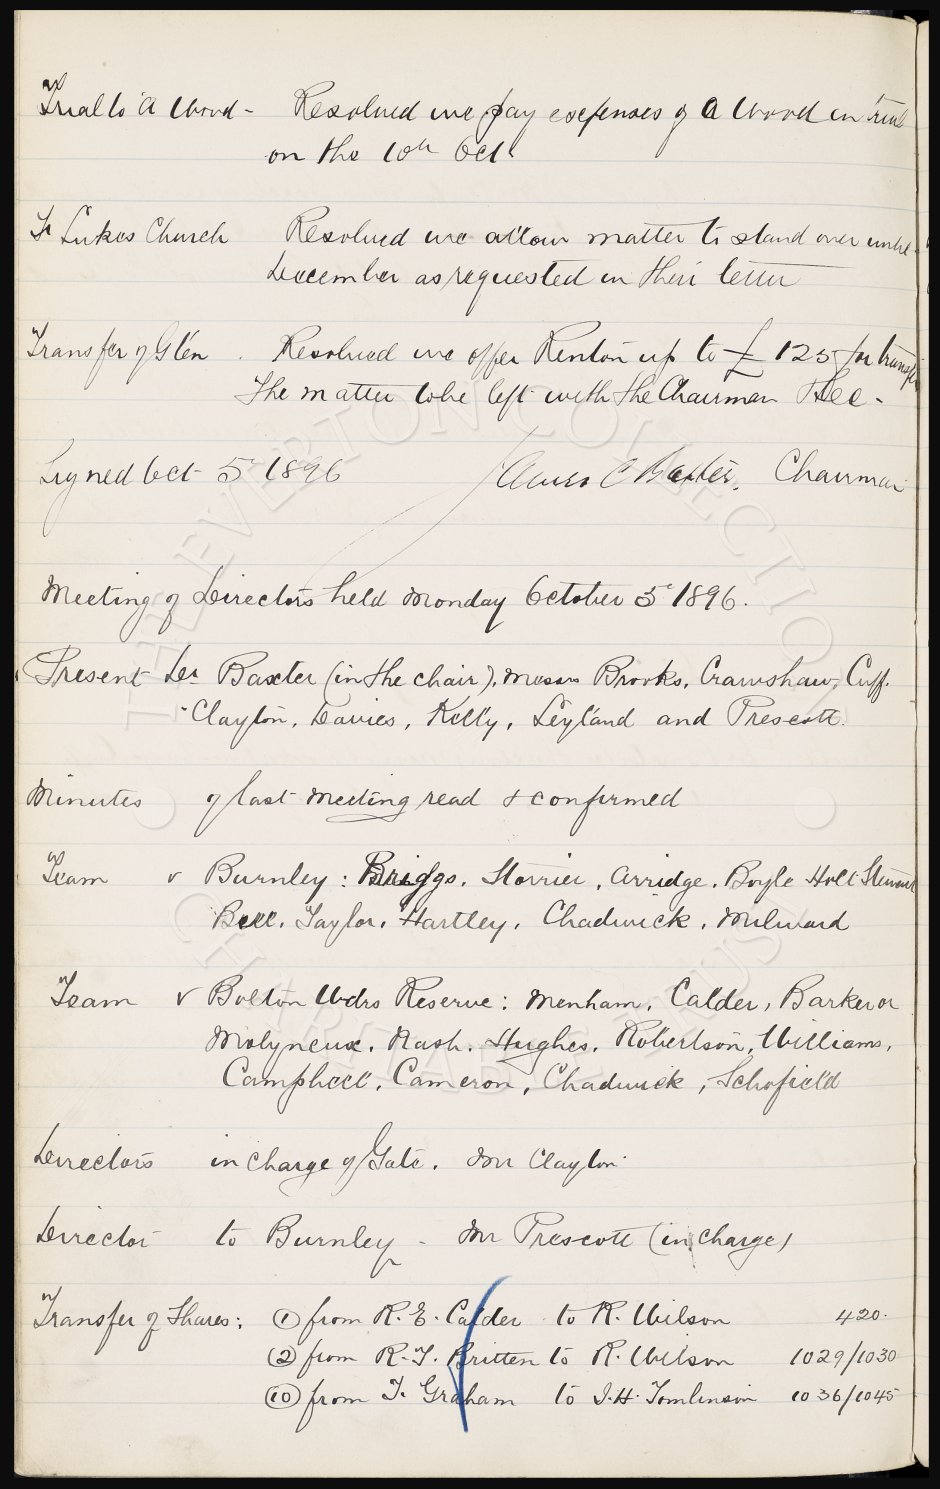 Trial to A Wood - Resolved we pay expenses of A Wood in trial
on the 10th Oct
St Lukes Church Resolved we allow matter to stand over until
December as requested in their letter
Transfer of Glen. Resolved we offer Renton up to £125 for transfer
The matter to be left with the Chairman & Sec -
Signed Oct 5 1896 James C Baxter. Chairman
Meeting of Directors held Monday October 5th 1896.
Present Dr Baxter (in the chair), Messrs Brooks, Crawshaw, Cuff.
Clayton, Davies, Kelly, Leyland and Prescott.
Minutes of last meeting read & confirmed
Team v Burnley: Briggs. Storrier, Arridge. Boyle Holt Stewart
Bell. Taylor. Hartley, Chadwick. Milward
Team v Bolton Wdrs Reserve: Menham. Calder, Barker or
Molyneux. Nash. Hughes. Robertson, Williams,
Campbell, Cameron, Chadwick, Schofield
Directors in charge of Gate. Mr Clayton
Director to Burnley - Mr Prescott (in charge)
Transfer of Shares: (1) from R. E. Calder to R. Wilson 420.
(2) from R. T. Britten to R. Wilson 1029/1030
(10) from T. Graham to J. H. Tomlinson 1036/1045
THE EVERTON COLLECTION
CHARITABLE TRUST